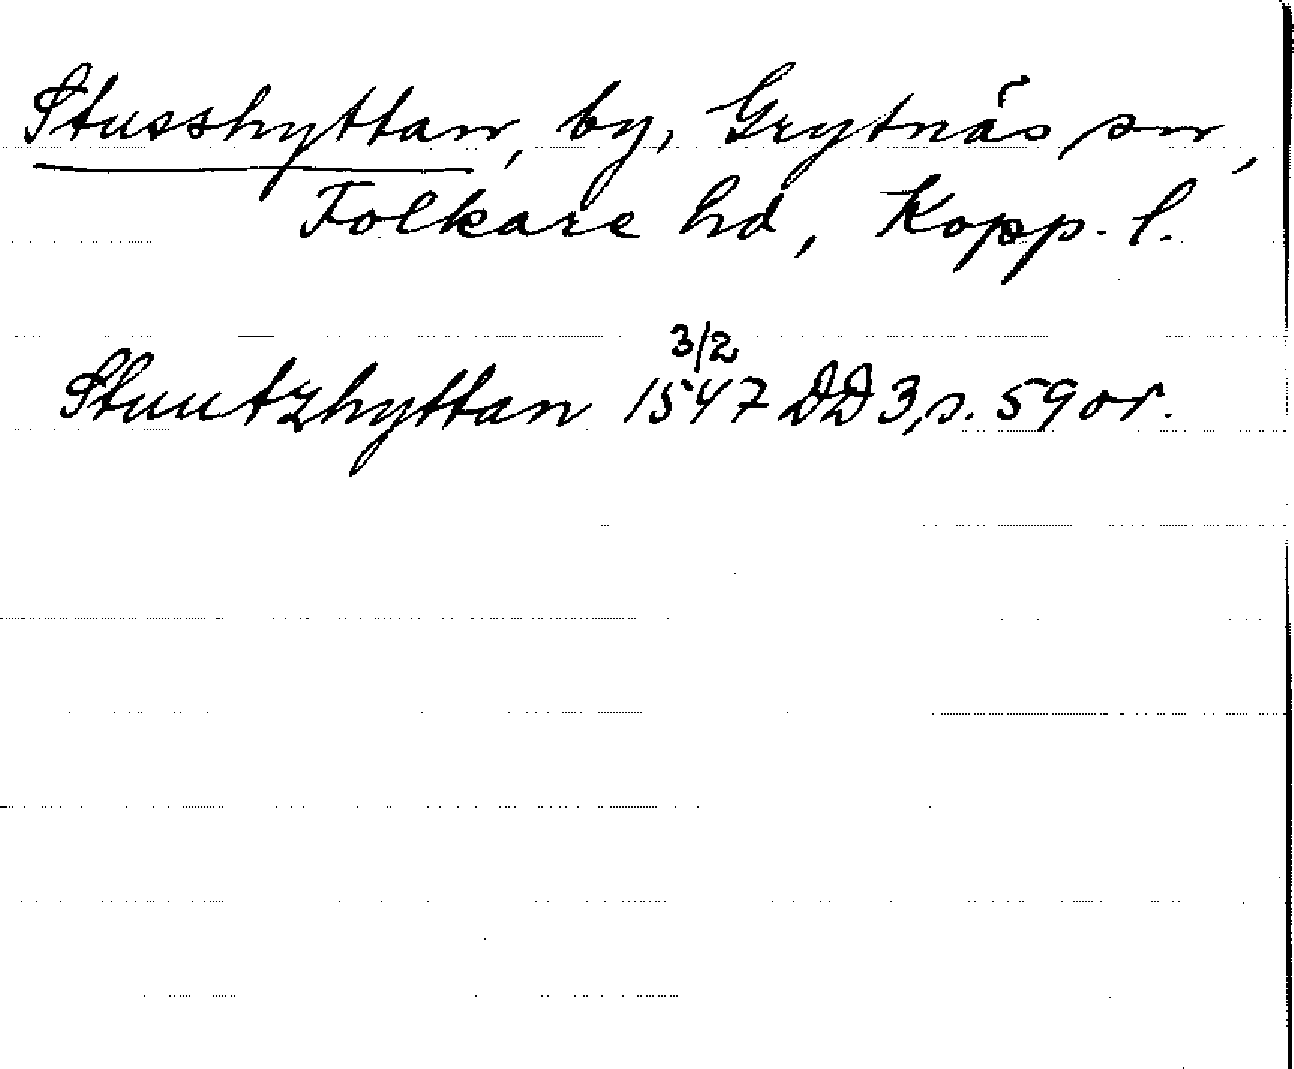 Stusshyttan, by, Grytnäs sn,
Folkare hd, Kopp. l.
Stuutzhyttan 3/2 1547 DD 3, s. 59 or.